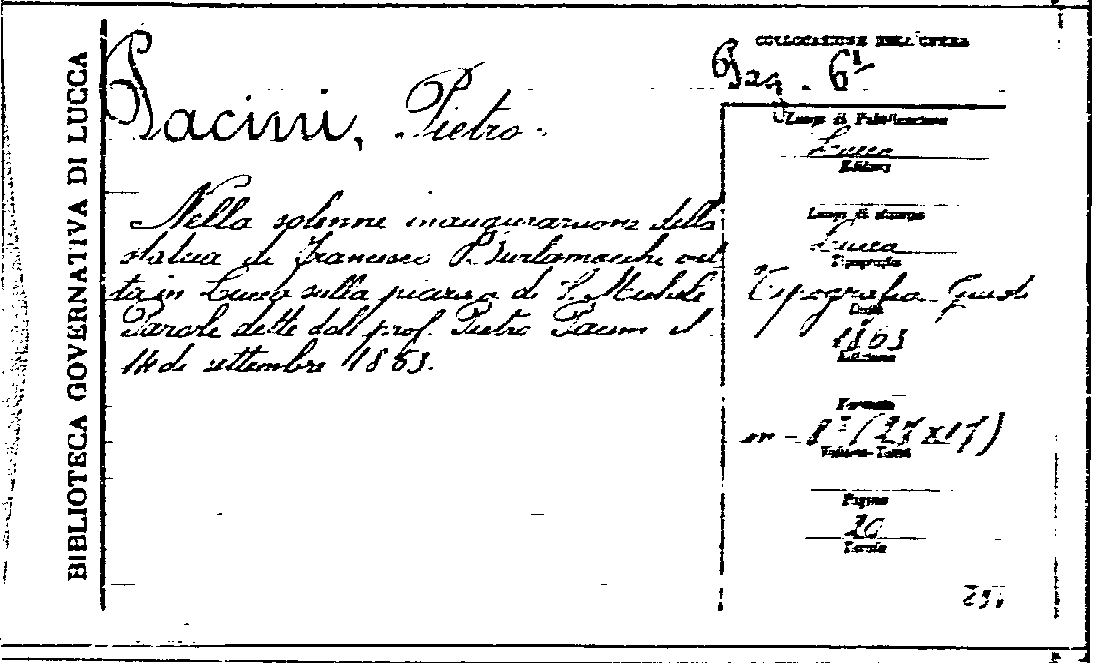 BIBLIOTECA GOVERNATIVA DI LUCCA
Pacini, Pietro.
Nella solenne inaugurazione della
statua di Francesco Burlamacchi eret
ta in Lucca sulla piazza di S. Michele
Parole dette dal prof. Pietro Pacini il
14 di settembre 1863.
COLLOCAZIONE DELL'OPERA
Luogo di Pubblicazione
Lucca
Editore
Luogo di stampa
Lucca
Tipografia
Tipografia Giusti
Data
1863
Edizione
Formato
in - 8° (27 x 17)
Volume-Tomo
Pagine
20
Tavole